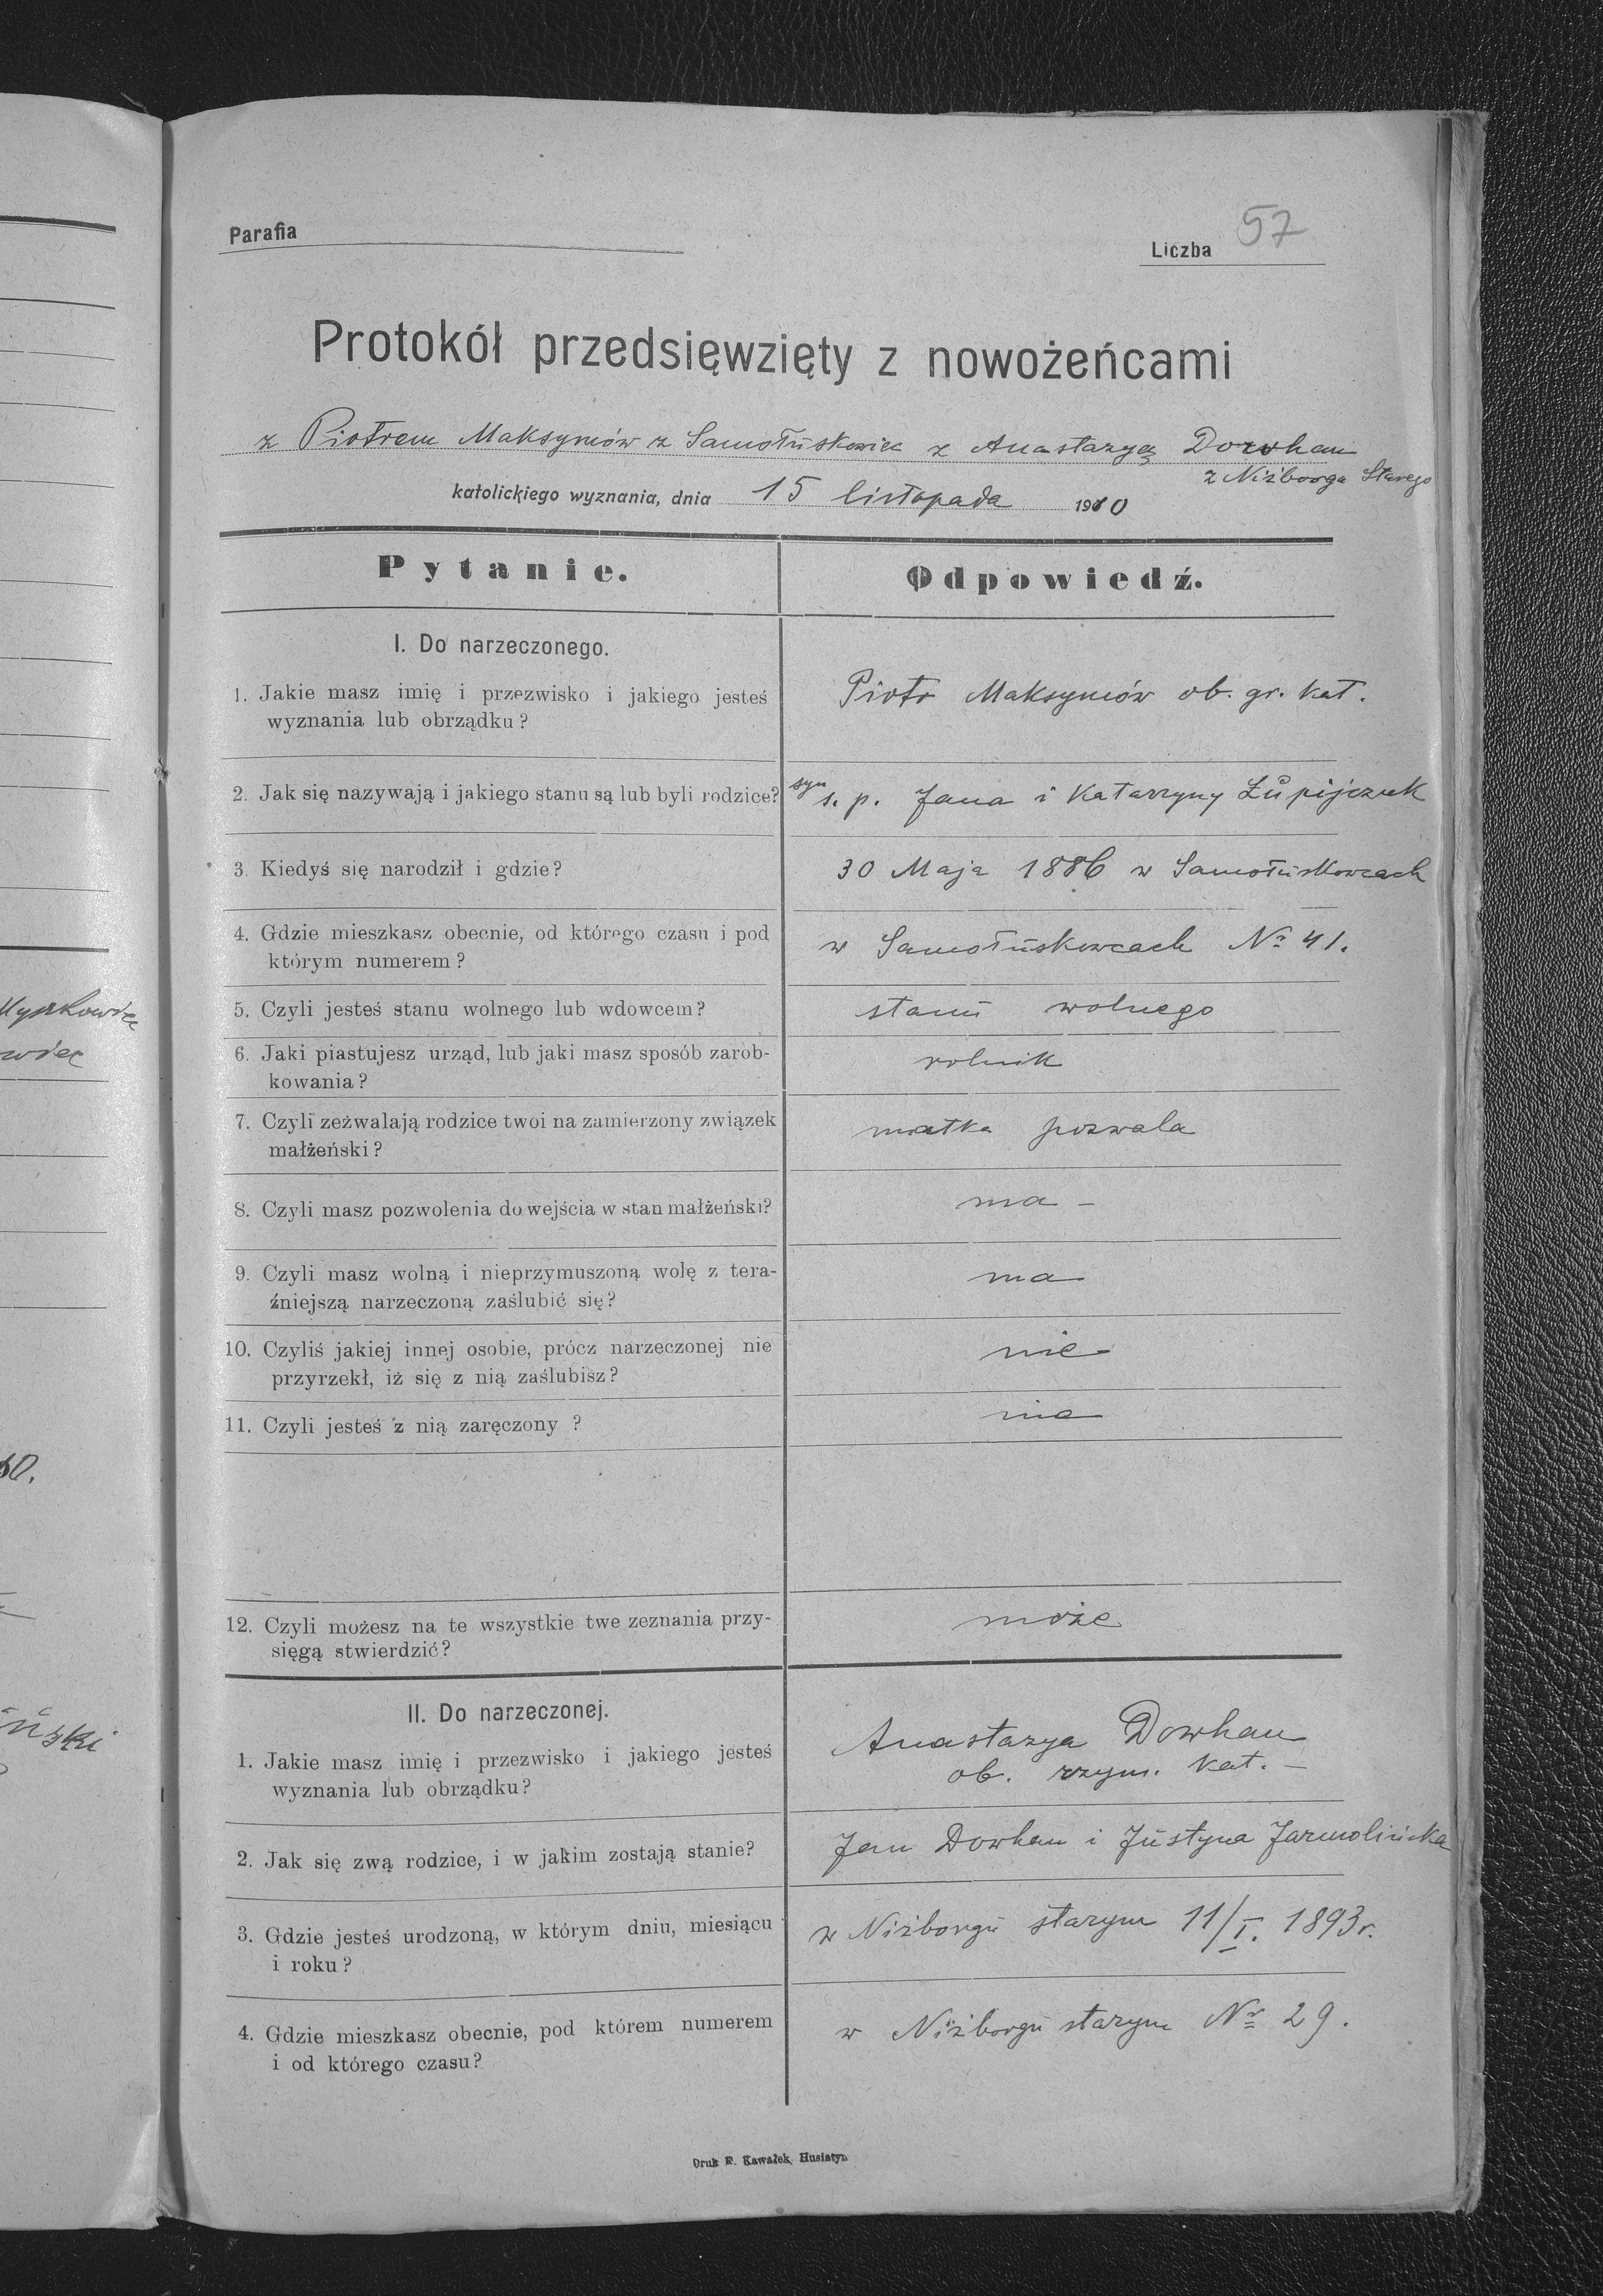 Parafia
Liczba 57
Protokół przedsięwzięty z nowożeńcami
z Piotrem Maksymów z Samołuskowiec z Anastazyą Dowhan
z Niżborga Starego
katolickiego wyznania, dnia 15 listopada 1910
Pytanie.
Odpowiedź.
I. Do narzeczonego.
1. Jakie masz imię i przezwisko i jakiego jesteś
wyznania lub obrządku?
Piotr Maksymów ob. gr. kat.
2. Jak się nazywają i jakiego stanu są lub byli rodzice?
syn ś. p. Jana i Katarzyny Łupijczuk
3. Kiedyś się narodził i gdzie?
30 Maja 1886 w Samołuskowcach
4. Gdzie mieszkasz obecnie, od którego czasu i pod
którym numerem?
w Samołuskowcach No 41.
5. Czyli jesteś stanu wolnego lub wdowcem?
stanu wolnego
6. Jaki piastujesz urząd, lub jaki masz sposób zarob-
kowania?
rolnik
7. Czyli zeżwalają rodzice twoi na zamierzony związek
małżeński?
matka pozwala
8. Czyli masz pozwolenia do wejścia w stan małżeński?
ma –
9. Czyli masz wolną i nieprzymuszoną wolę z tera-
źniejszą narzeczoną zaślubić się?
ma
10. Czyliś jakiej innej osobie, prócz narzeczonej nie
przyrzekł, iż się z nią zaślubisz?
nie
11. Czyli jesteś z nią zaręczony ?
nie
12. Czyli możesz na te wszystkie twe zeznania przy-
sięgą stwierdzić?
może
II. Do narzeczonej.
1. Jakie masz imię i przezwisko i jakiego jesteś
wyznania lub obrządku?
Anastazya Dowhan
ob. rzym. kat. –
2. Jak się zwą rodzice, i w jakim zostają stanie?
Jan Dowhan i Justyna Jarmolińska
3. Gdzie jesteś urodzoną, w którym dniu, miesiącu
i roku?
w Niżborgu starym 11/I. 1893 r.
4. Gdzie mieszkasz obecnie, pod którem numerem
i od którego czasu?
w Niżborgu starym Nr 29.
Druk F. Kawałek, Husiatyn